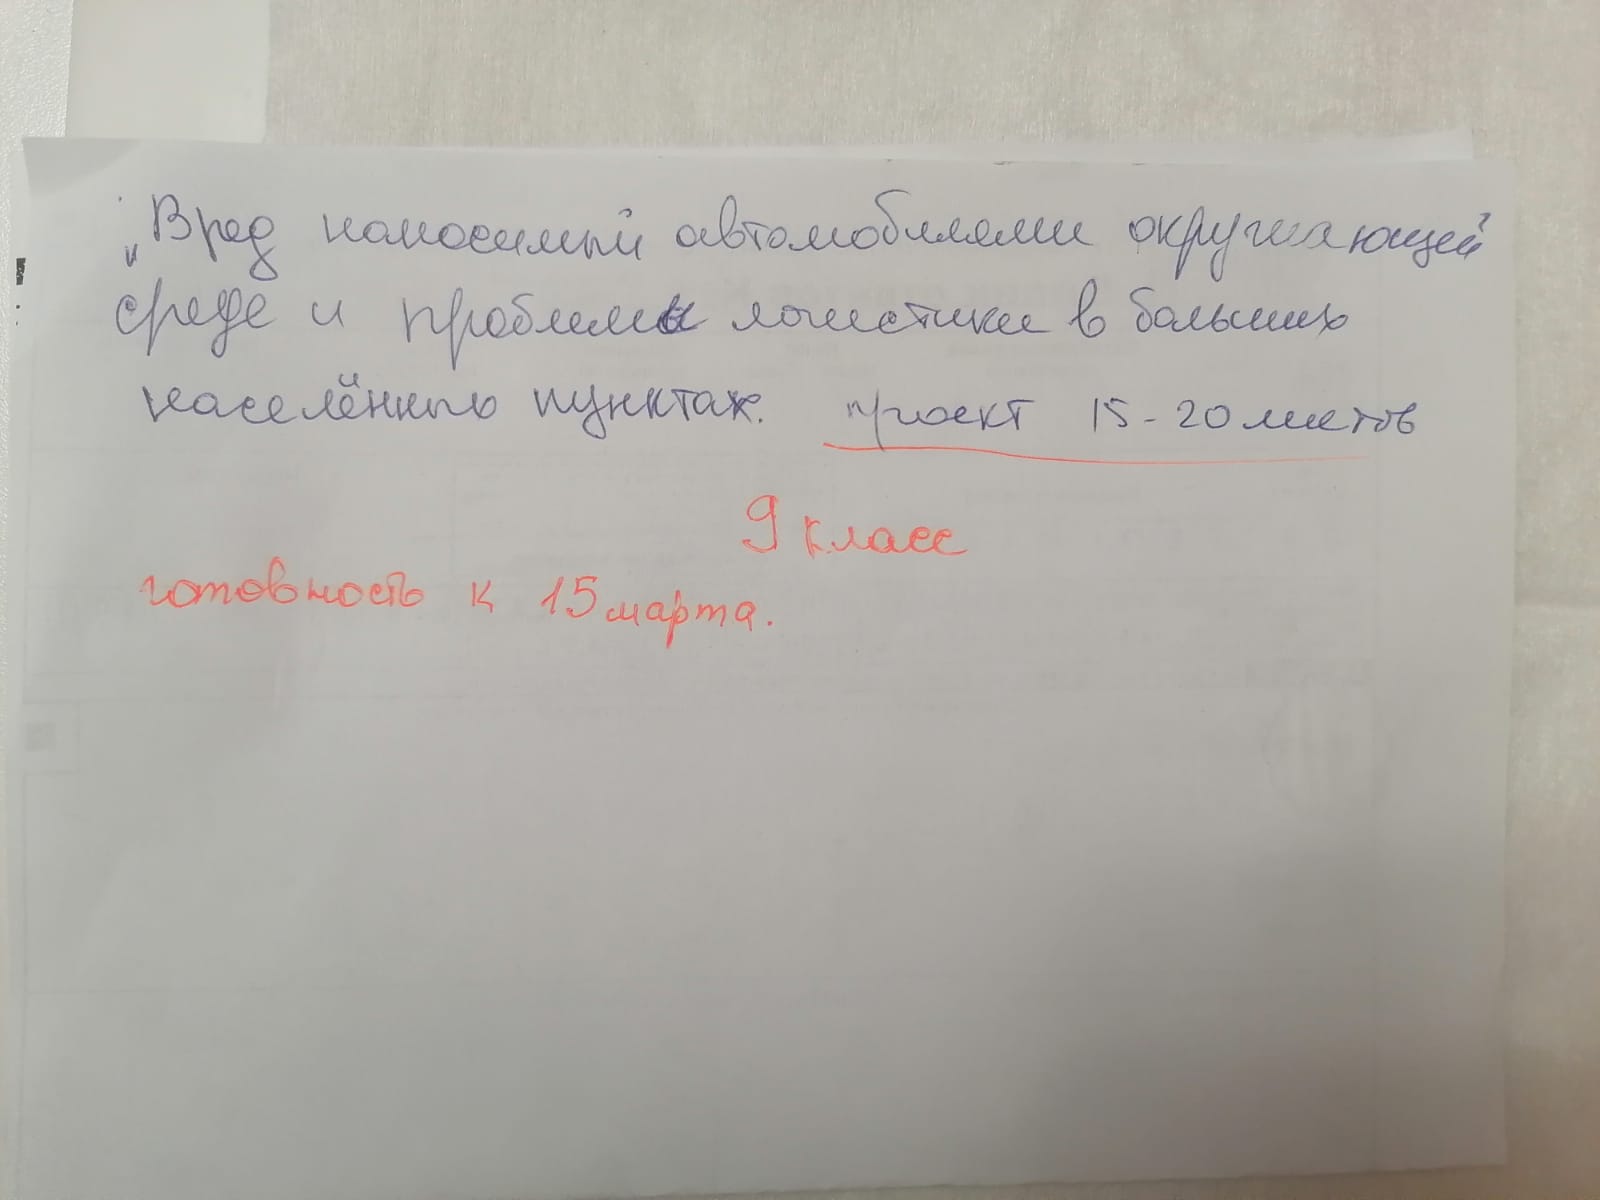 „Вред наносимый автомобилями окружающей
среде и проблемы логистики в больших
населённых пунктах. проект 15-20 листов
9 класс
готовность к 15 марта.